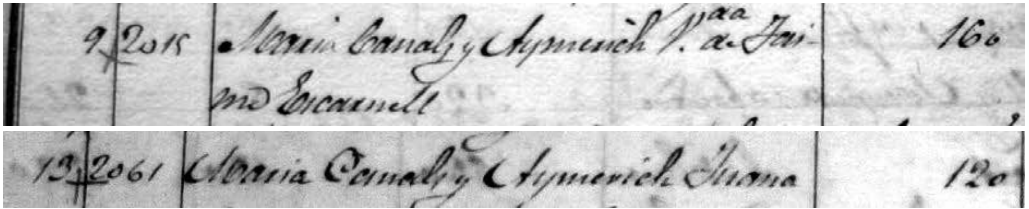 9 2015 Maria Canals y Aymerich V.da de Jai-
me Escarnell
13 2061 Maria Canals y Aymerich Juana